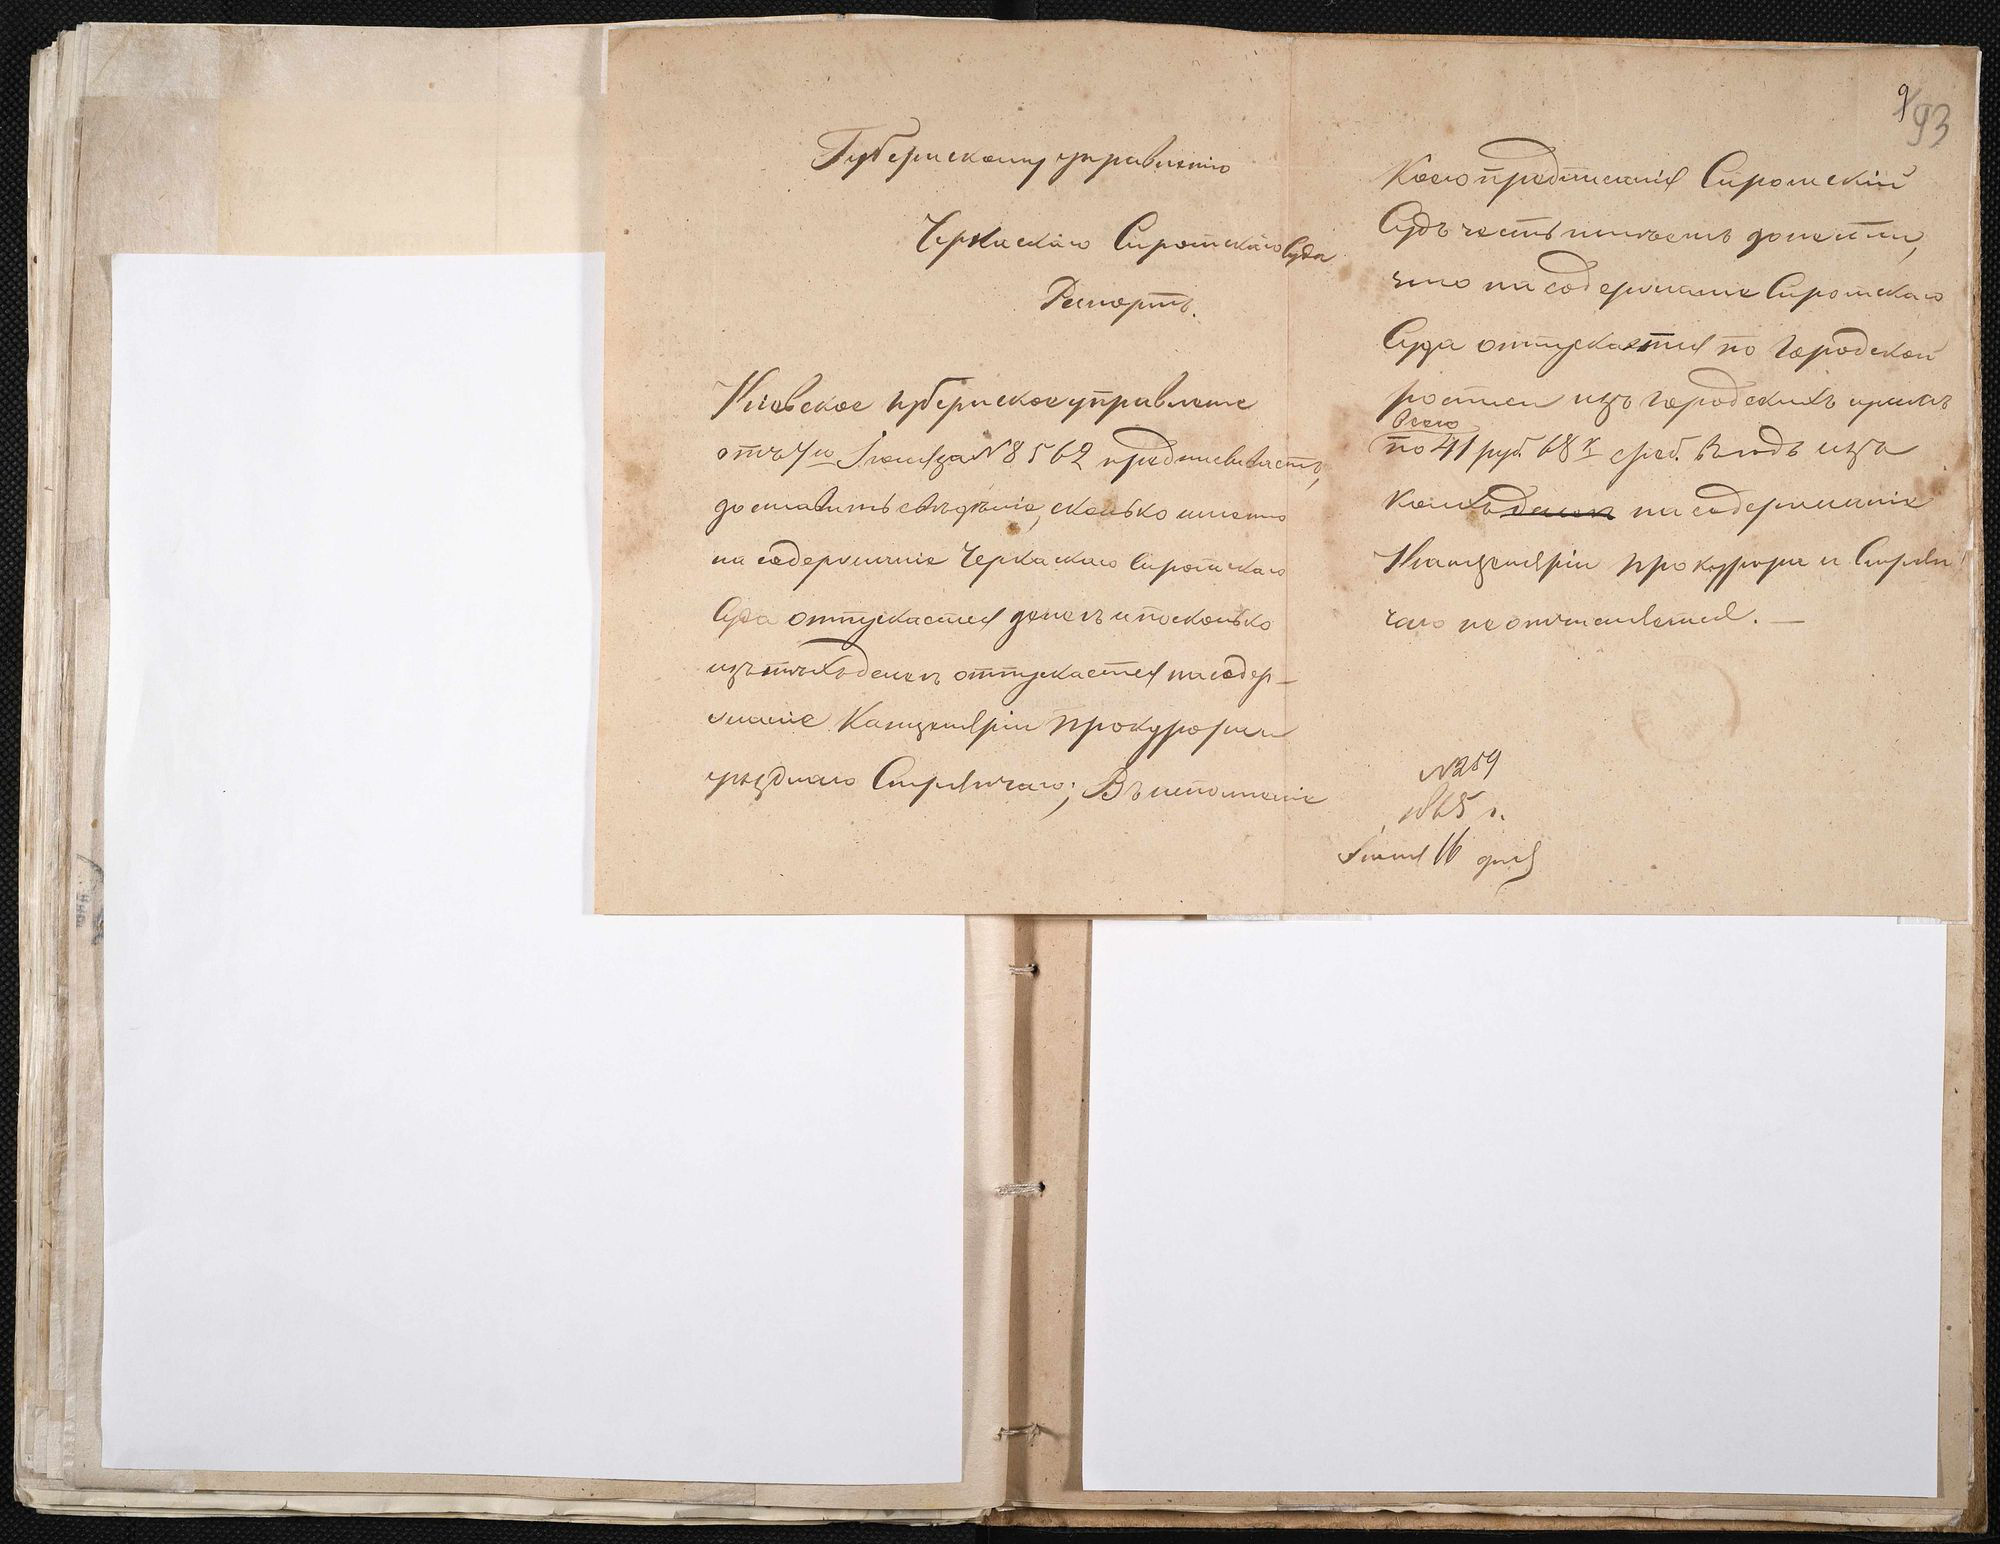 Губернскому управленію
Черкаскаго Сиротскаго Суда
Рапортъ.
Кіевское губернское управленіе
отъ 7го Іюня за № 8562 предписываетъ,
доставить свѣденіе, сколько именно
на содержаніе Черкаскаго Сиротскаго
Суда отпускается денегъ и посколько
изъ тѣхъ денегъ отпускается на содер-
жаніе Канцеляріи прокурора и
уѣзднаго Стряпчаго; Въ исполненіе
93
каего предписанія Сиротскій
Судъ честь имѣетъ донести,
что на содержаніе Сиротскаго
Суда отпускается по городской
росписи изъ городскихъ сумъ
всего
по 41 руб. 68 к сереб. въ годъ изъ
коихъ денегъ на содержаніе
Канцеляріи прокурора и Стряп
чаго не отчисляется. —
№ 259
1865 г.
Іюня 16 дня